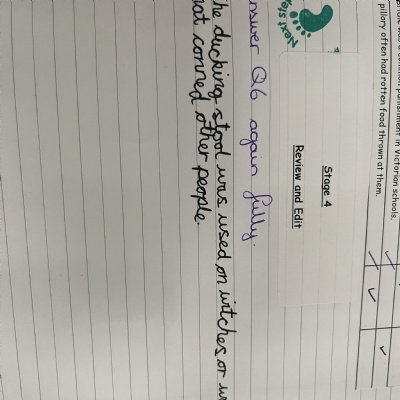 punishment in Victorian schools.
pillory often had rotten food thrown at them.
Stage 4
Review and Edit
Next
Q6 again fully.
ducking stool was used on witches or
conned other people.